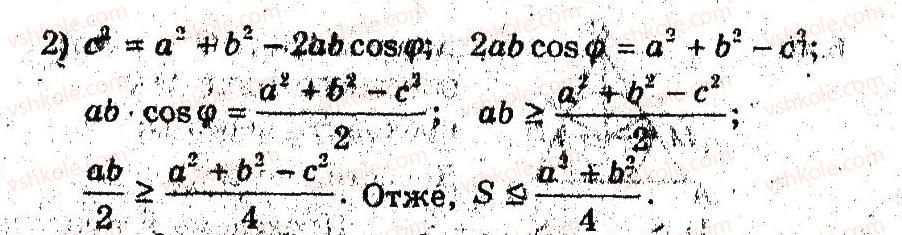 2) c² = a² + b² – 2ab cos φ; 2ab cos φ = a² + b² – c²;
ab · cos φ = (a² + b² – c²)/2; ab ≥ (a² + b² – c²)/2;
ab/2 ≥ (a² + b² – c²)/4. Отже, S ≤ (a² + b²)/4.